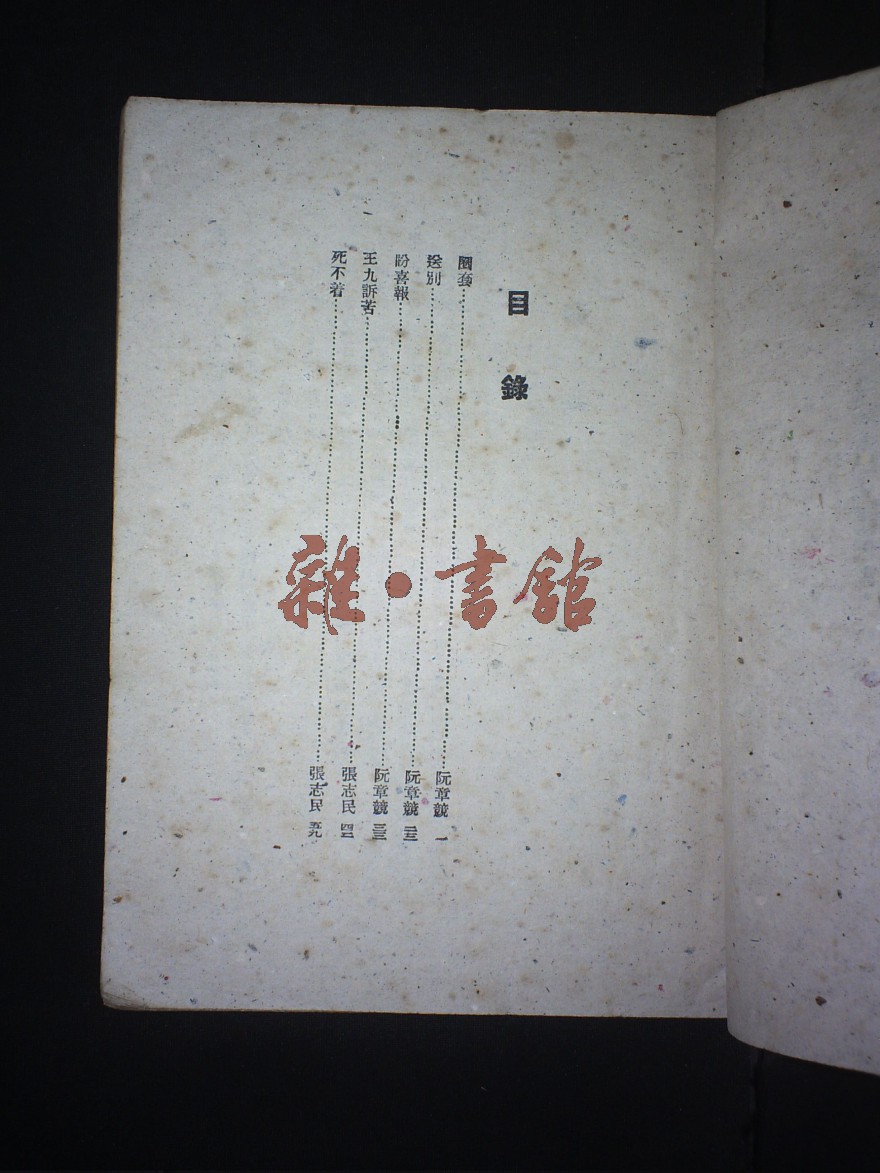 目錄
圈套……阮章競 一
送別……阮章競 二三
盼喜報……阮章競 三三
王九訴苦……張志民 四三
死不着……張志民 五九
雜·書館